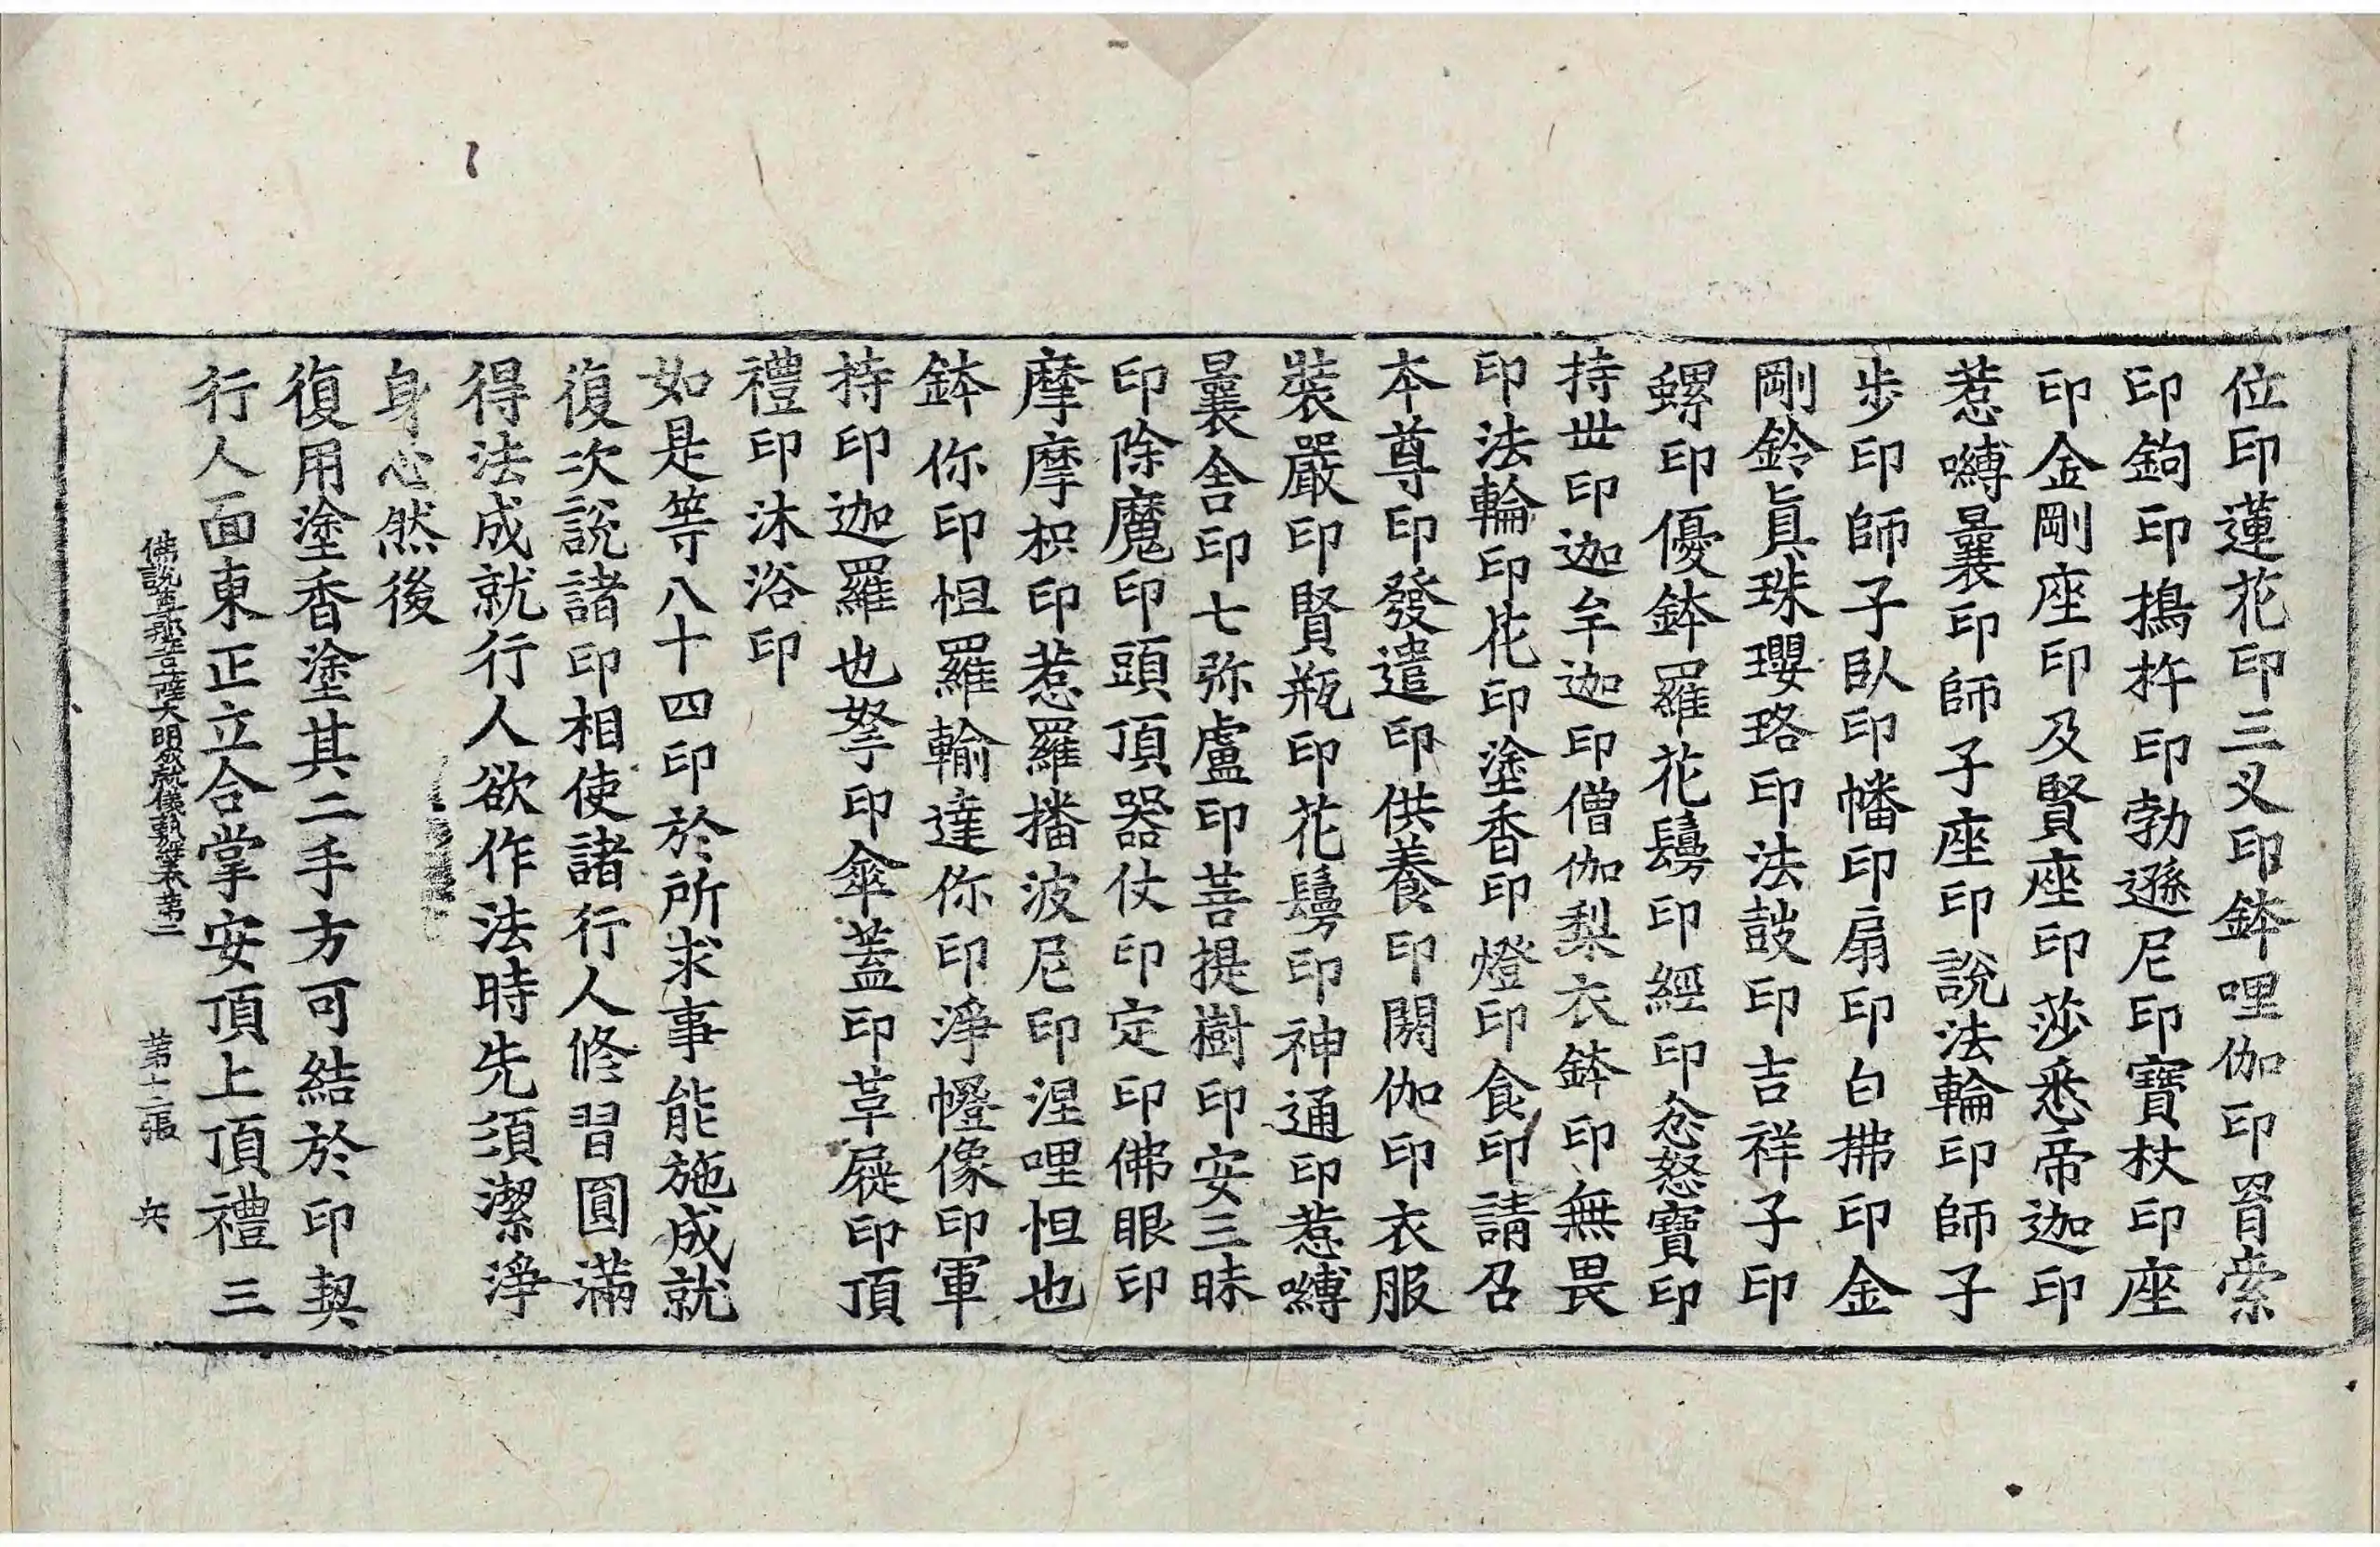 位印蓮花印三叉印鉢哩伽印罥索
印鉤印搗杵印勃遜尼印寶杖印座
印金剛座印及賢座印莎悉帝迦印
惹嚩曩印師子座印說法輪印師子
步印師子臥印幡印扇印白拂印金
剛鈴眞珠瓔珞印法鼓印吉祥子印
螺印優鉢羅花鬘印經印忿怒寶印
持世印迦牟迦印僧伽梨衣鉢印無畏
印法輪印花印塗香印燈印食印請召
本尊印發遣印供養印閼伽印衣服
裝嚴印賢瓶印花鬘印神通印惹嚩
曩舍印七弥盧印菩提樹印安三昧
印除魔印頭頂器仗印定印佛眼印
摩摩枳印惹羅播波尼印涅哩怛也
鉢你印怛羅輸達你印淨幢像印軍
持印迦羅也拏印傘蓋印草屣印頂
禮印沐浴印
如是等八十四印於所求事能施成就
復次說諸印相使諸行人修習圓滿
得法成就行人欲作法時先須潔淨
身心然後
復用塗香塗其二手方可結於印契
行人面東正立合掌安頂上頂禮三
佛說妙吉祥菩薩大明成就儀軌經卷第二 第十二張